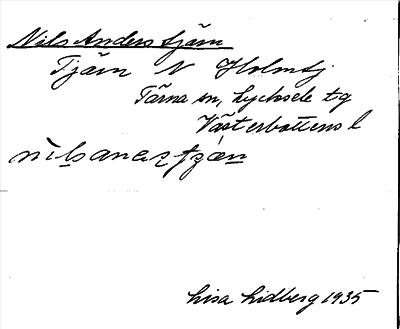 Nils Anders tjärn
Tjärn N Holmsj
Tärna sn, Lycksele tg
Västerbottens l
Lisa Lidberg 1935